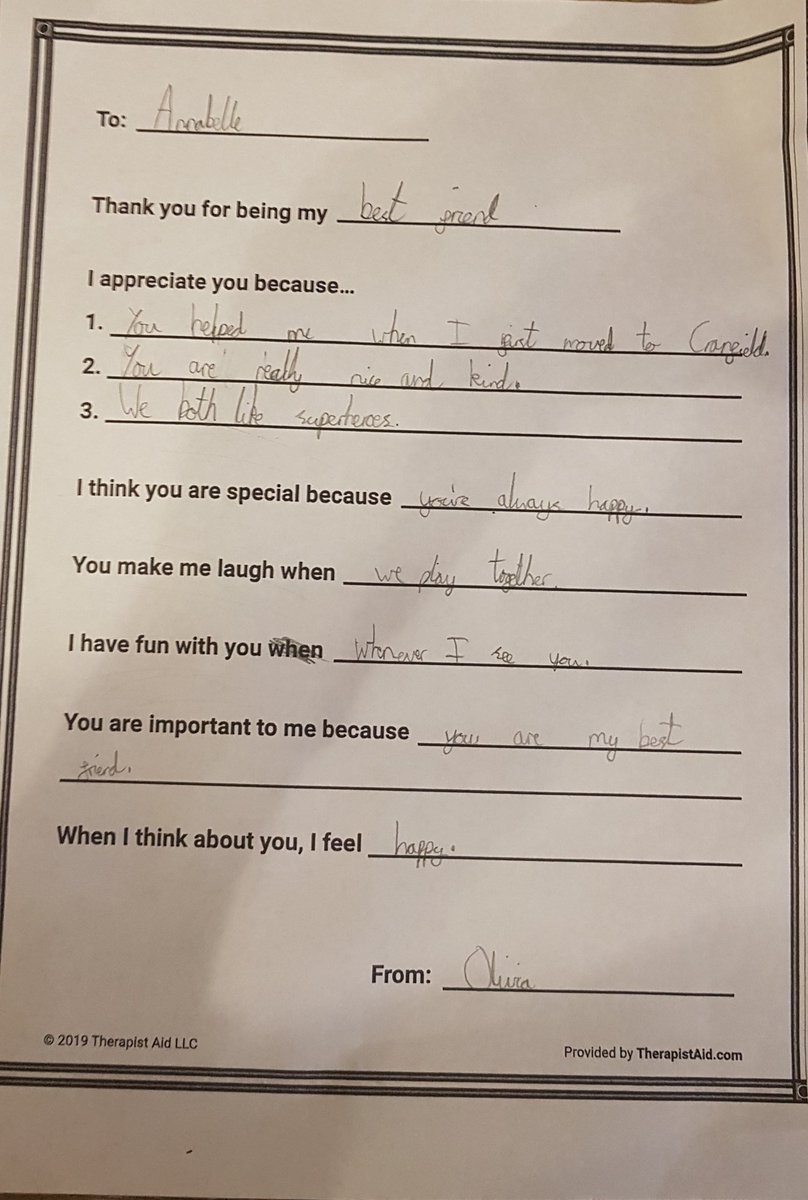 To: Annabelle
Thank you for being my best friend
I appreciate you because...
1. You helped me when I first moved to Cranfield.
2. You are really nice and kind.
3. We both like superheroes.
I think you are special because you're always happy.
You make me laugh when we play together.
I have fun with you when Whenever I see you.
You are important to me because you are my best
friend.
When I think about you, I feel happy.
From: Olivia
© 2019 Therapist Aid LLC
Provided by TherapistAid.com